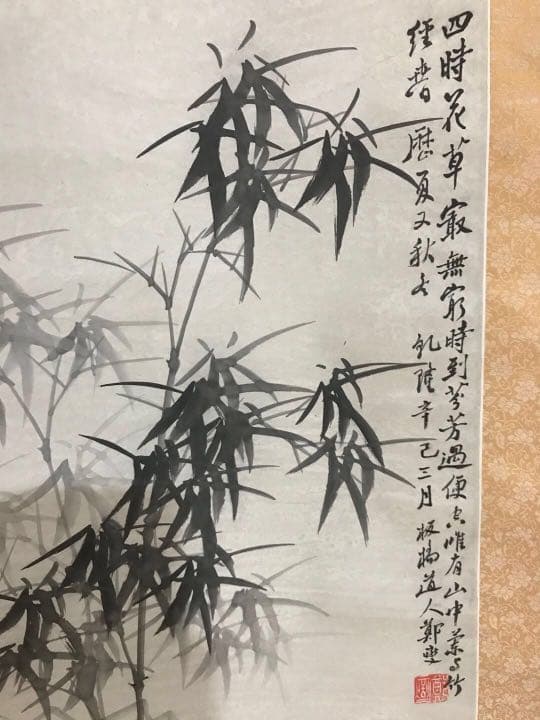 四時花草最無窮時到芬芳過便空唯有山中蘭与竹
經春歷夏又秋冬 乾隆辛巳三月 板橋道人鄭燮